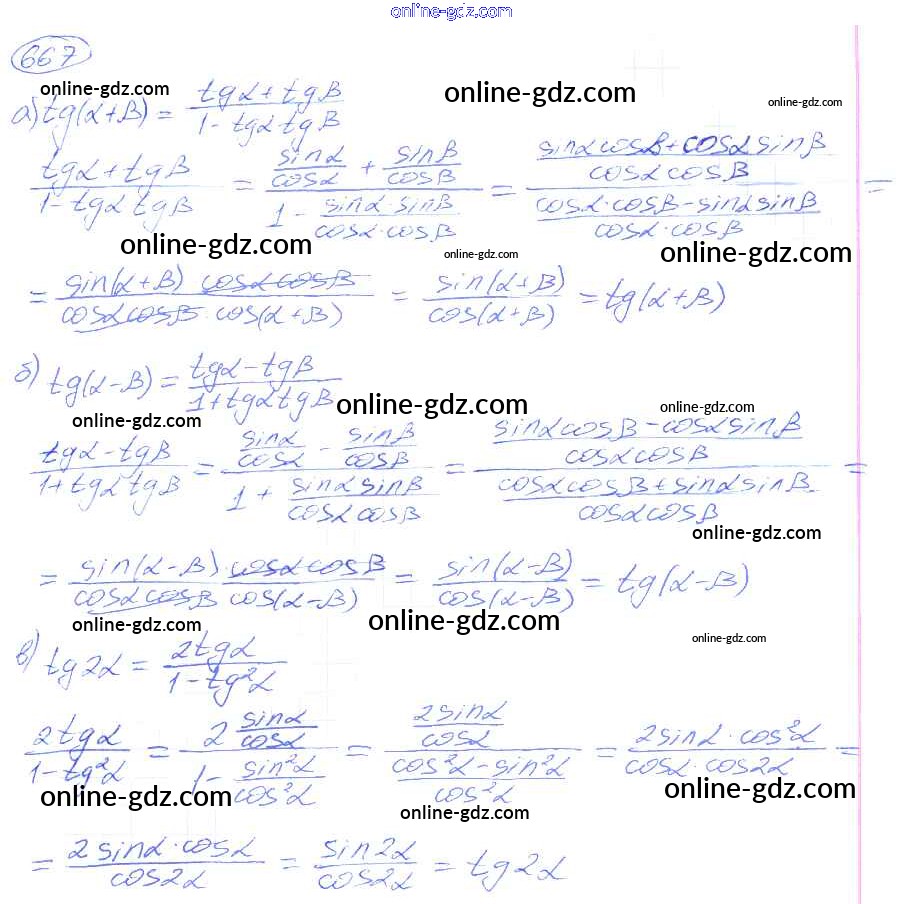 online-gdz.com
667
online-gdz.com online-gdz.com online-gdz.com
а) tg(α+β) = (tgα + tgβ)/(1 - tgα tgβ)
(tgα + tgβ)/(1 - tgα tgβ) = (sinα/cosα + sinβ/cosβ)/(1 - (sinα · sinβ)/(cosα · cosβ)) = ((sinα cosβ + cosα sinβ)/(cosα cosβ))/((cosα · cosβ - sinα sinβ)/(cosα · cosβ)) =
online-gdz.com online-gdz.com online-gdz.com
= (sin(α+β) cosα cosβ)/(cosα cosβ · cos(α+β)) = sin(α+β)/cos(α+β) = tg(α+β)
б) tg(α-β) = (tgα - tgβ)/(1 + tgα tgβ)
online-gdz.com online-gdz.com online-gdz.com
(tgα - tgβ)/(1 + tgα tgβ) = (sinα/cosα - sinβ/cosβ)/(1 + (sinα sinβ)/(cosα cosβ)) = ((sinα cosβ - cosα sinβ)/(cosα cosβ))/((cosα cosβ + sinα sinβ)/(cosα cosβ)) =
online-gdz.com
= (sin(α-β) · cosα cosβ)/(cosα cosβ cos(α-β)) = sin(α-β)/cos(α-β) = tg(α-β)
online-gdz.com online-gdz.com online-gdz.com
в) tg2α = 2tgα/(1 - tg²α)
2tgα/(1 - tg²α) = (2 sinα/cosα)/(1 - sin²α/cos²α) = (2sinα/cosα)/((cos²α - sin²α)/cos²α) = (2sinα · cos²α)/(cosα · cos2α) =
online-gdz.com online-gdz.com online-gdz.com
= (2 sinα · cosα)/cos2α = sin2α/cos2α = tg2α